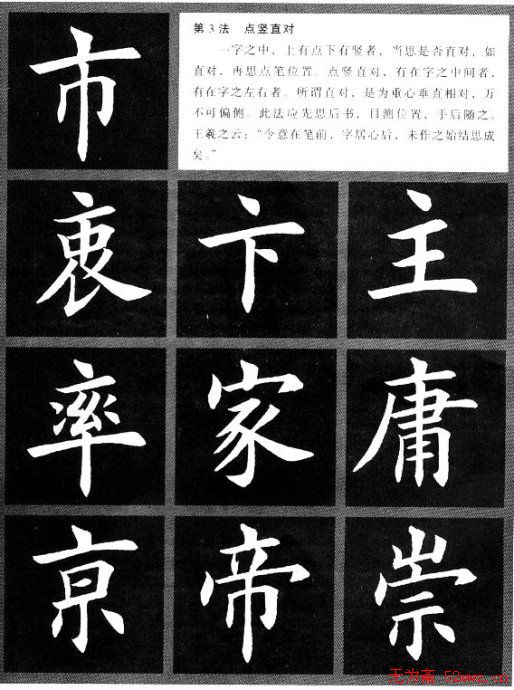 第3法 点竖直对
一字之中，上有点下有竖者，当思是否直对，如
直对，再思点笔位置。点竖直对，有在字之中间者，
有在字之左右者。所谓直对，是为重心垂直相对，万
不可偏侧。此法应先思后书，目测位置，手后随之。
王羲之云：“令意在笔前，字居心后，未作之始结思成
矣。”
市
衷 卞 主
率 家 庸
京 帝 崇
无为斋